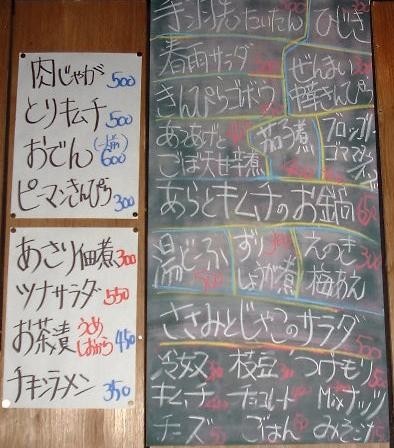 肉じゃが 500
とりキムチ 500
おでん (一皿) 600
ピーマンきんぴら 300
あさり佃煮 300
ツナサラダ 550
お茶漬 うめ しおから 450
チキンラーメン 350
ひじき
春雨サラダ
ぜんまい
きんぴらゴボウ
中華きんぴら
あつあげと
ごぼ天甘辛煮
茄子煮
ブロッコリー
ゴママヨネーズ
あらとキムチのお鍋
湯どうふ 500
ずり
しょうが煮
えのき 300
梅あえ
ささみとじゃこのサラダ 500
冷奴 枝豆 つけもり
キムチ チョコレート Mixナッツ
チーズ ごはん みそ汁